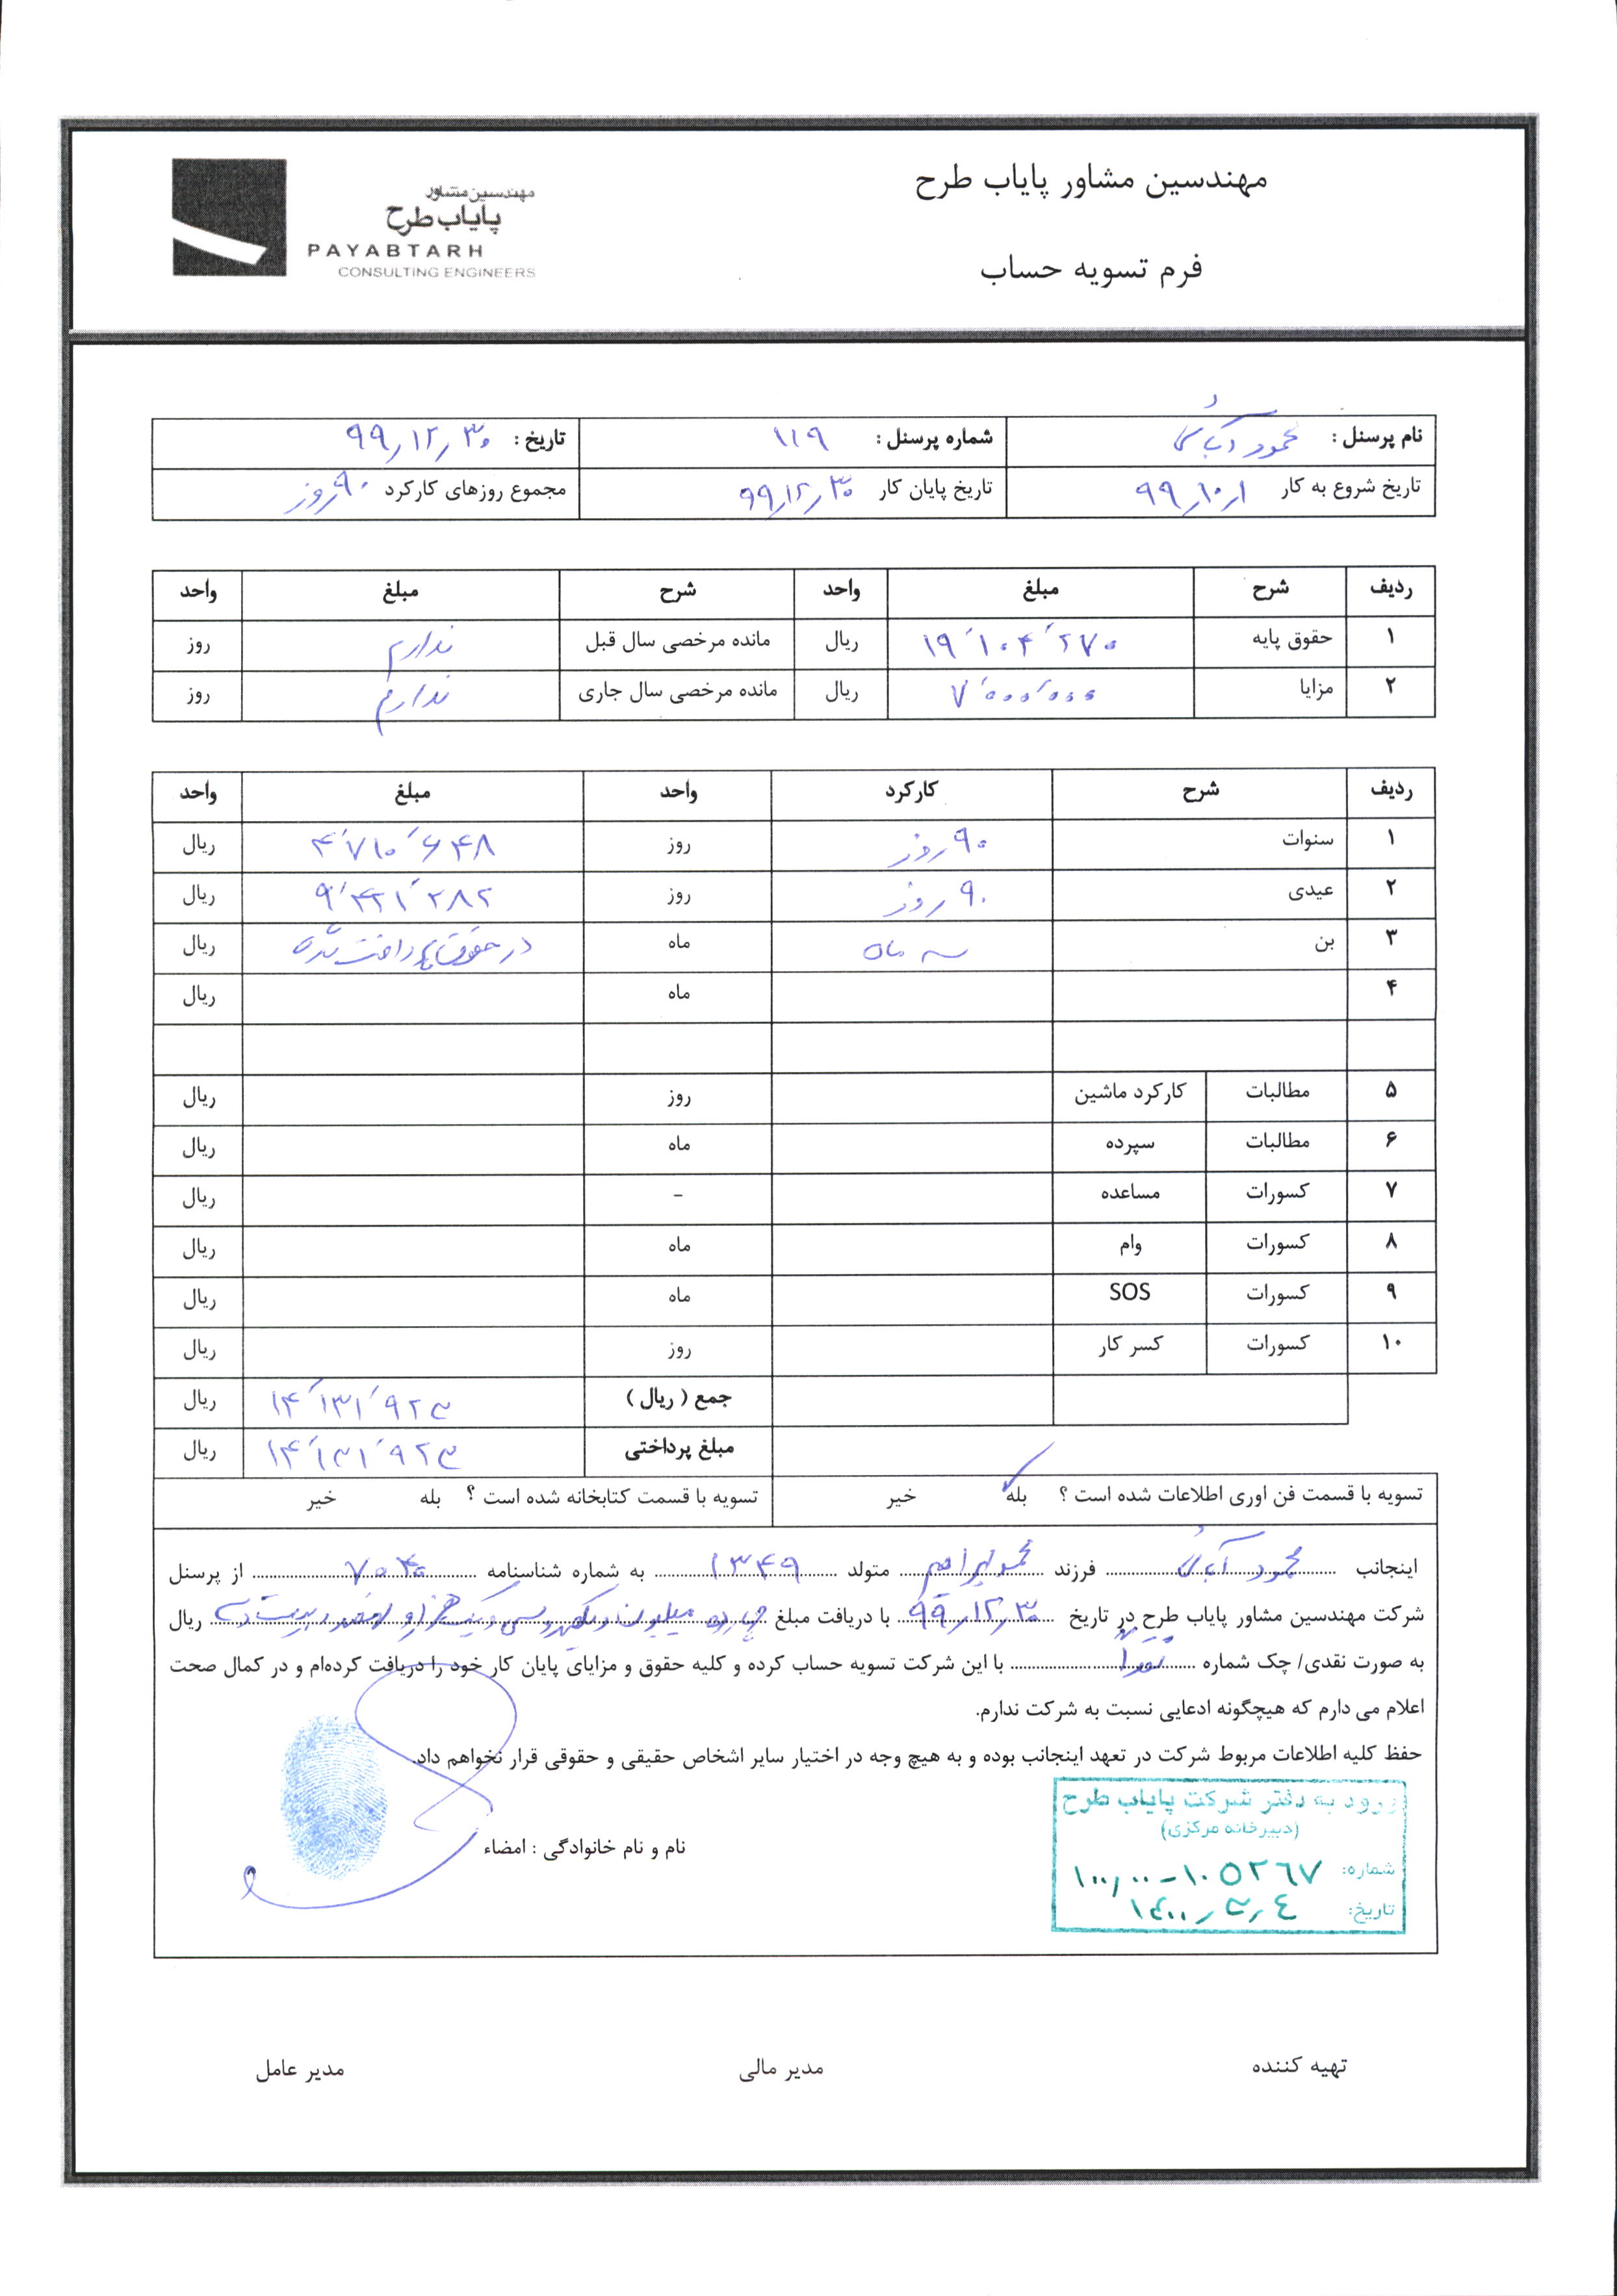 مهندسین مشاور پایاب طرح
مهندسین مشاور
پایاب طرح
PAYABTARH
CONSULTING ENGINEERS
فرم تسویه حساب
نام پرسنل : محمود شماره پرسنل : ۱۱۹ تاریخ : ۹۹/۱۲/۳۰
تاریخ شروع به کار ۹۹/۱۰/۱ تاریخ پایان کار ۹۹/۱۲/۳۰ مجموع روزهای کارکرد ۹۰ روز
ردیف شرح مبلغ واحد شرح مبلغ واحد
۱ حقوق پایه ۱۹٬۱۰۴٬۲۷۰ ریال مانده مرخصی سال قبل ندارم روز
۲ مزایا ۷٬۰۰۰٬۰۰۰ ریال مانده مرخصی سال جاری ندارم روز
ردیف شرح کارکرد واحد مبلغ واحد
۱ سنوات ۹۰ روز روز ۴٬۷۱۰٬۶۴۸ ریال
۲ عیدی ۹۰ روز روز ۹٬۴۲۱٬۲۸۲ ریال
۳ بن سه ماه ماه در حقوق پرداخت شده ریال
۴ ماه ریال
۵ مطالبات کارکرد ماشین روز ریال
۶ مطالبات سپرده ماه ریال
۷ کسورات مساعده - ریال
۸ کسورات وام ماه ریال
۹ کسورات SOS ماه ریال
۱۰ کسورات کسر کار روز ریال
جمع ( ریال ) ۱۴٬۱۳۱٬۹۲۳ ریال
مبلغ پرداختی ۱۴٬۱۳۱٬۹۲۳ ریال
تسویه با قسمت فن اوری اطلاعات شده است ؟ بله خیر تسویه با قسمت کتابخانه شده است ؟ بله خیر
اینجانب محمود فرزند محمدابراهیم متولد ۱۳۴۹ به شماره شناسنامه ۷۰۴۰ از پرسنل
شرکت مهندسین مشاور پایاب طرح در تاریخ ۹۹/۱۲/۳۰ با دریافت مبلغ چهارده میلیون و یکصد و سی و یک هزار و نهصد و بیست و سه ریال
به صورت نقدی/ چک شماره نقداً با این شرکت تسویه حساب کرده و کلیه حقوق و مزایای پایان کار خود را دریافت کرده‌ام و در کمال صحت
اعلام می دارم که هیچگونه ادعایی نسبت به شرکت ندارم.
حفظ کلیه اطلاعات مربوط شرکت در تعهد اینجانب بوده و به هیچ وجه در اختیار سایر اشخاص حقیقی و حقوقی قرار نخواهم داد.
ورود به دفتر شرکت پایاب طرح
(دبیرخانه مرکزی)
شماره: ۱۰۰/۰۰-۱۰۵۲۶۷
تاریخ: ۱۴۰۰/۳/۴
نام و نام خانوادگی : امضاء
تهیه کننده مدیر مالی مدیر عامل